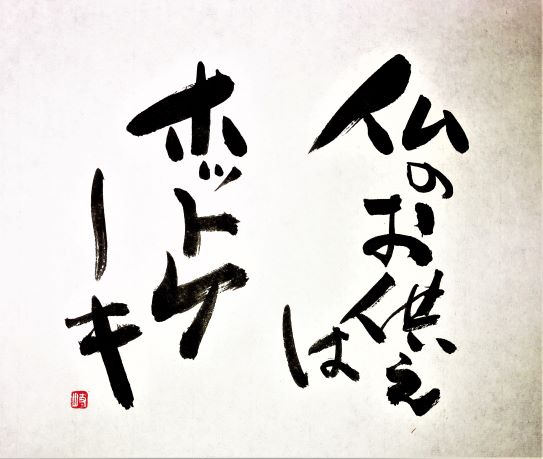 仏のお供え
は
ホットケ
ーキ